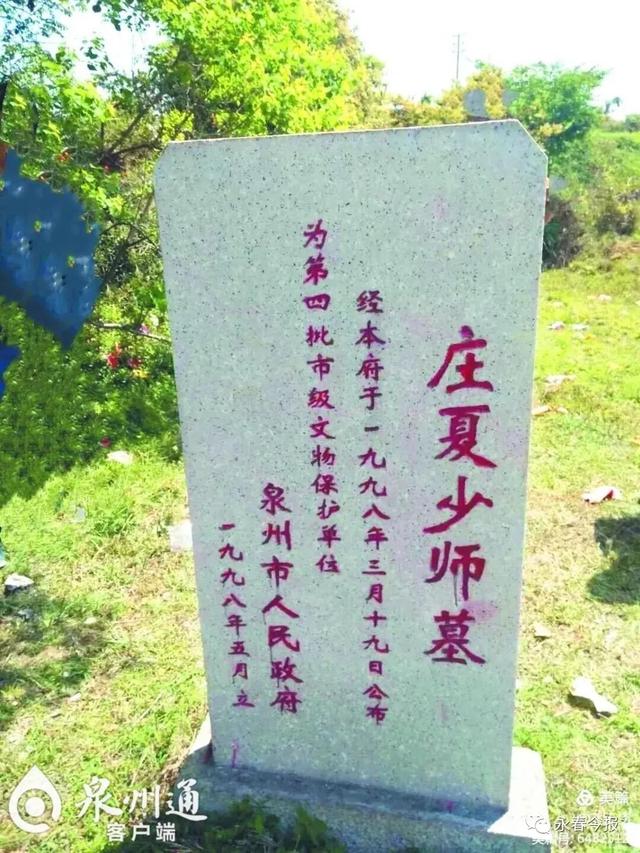 庄夏少师墓
经本府于一九九八年三月十九日公布
为第四批市级文物保护单位
泉州市人民政府
一九九八年五月立
泉州通
客户端
永春今报